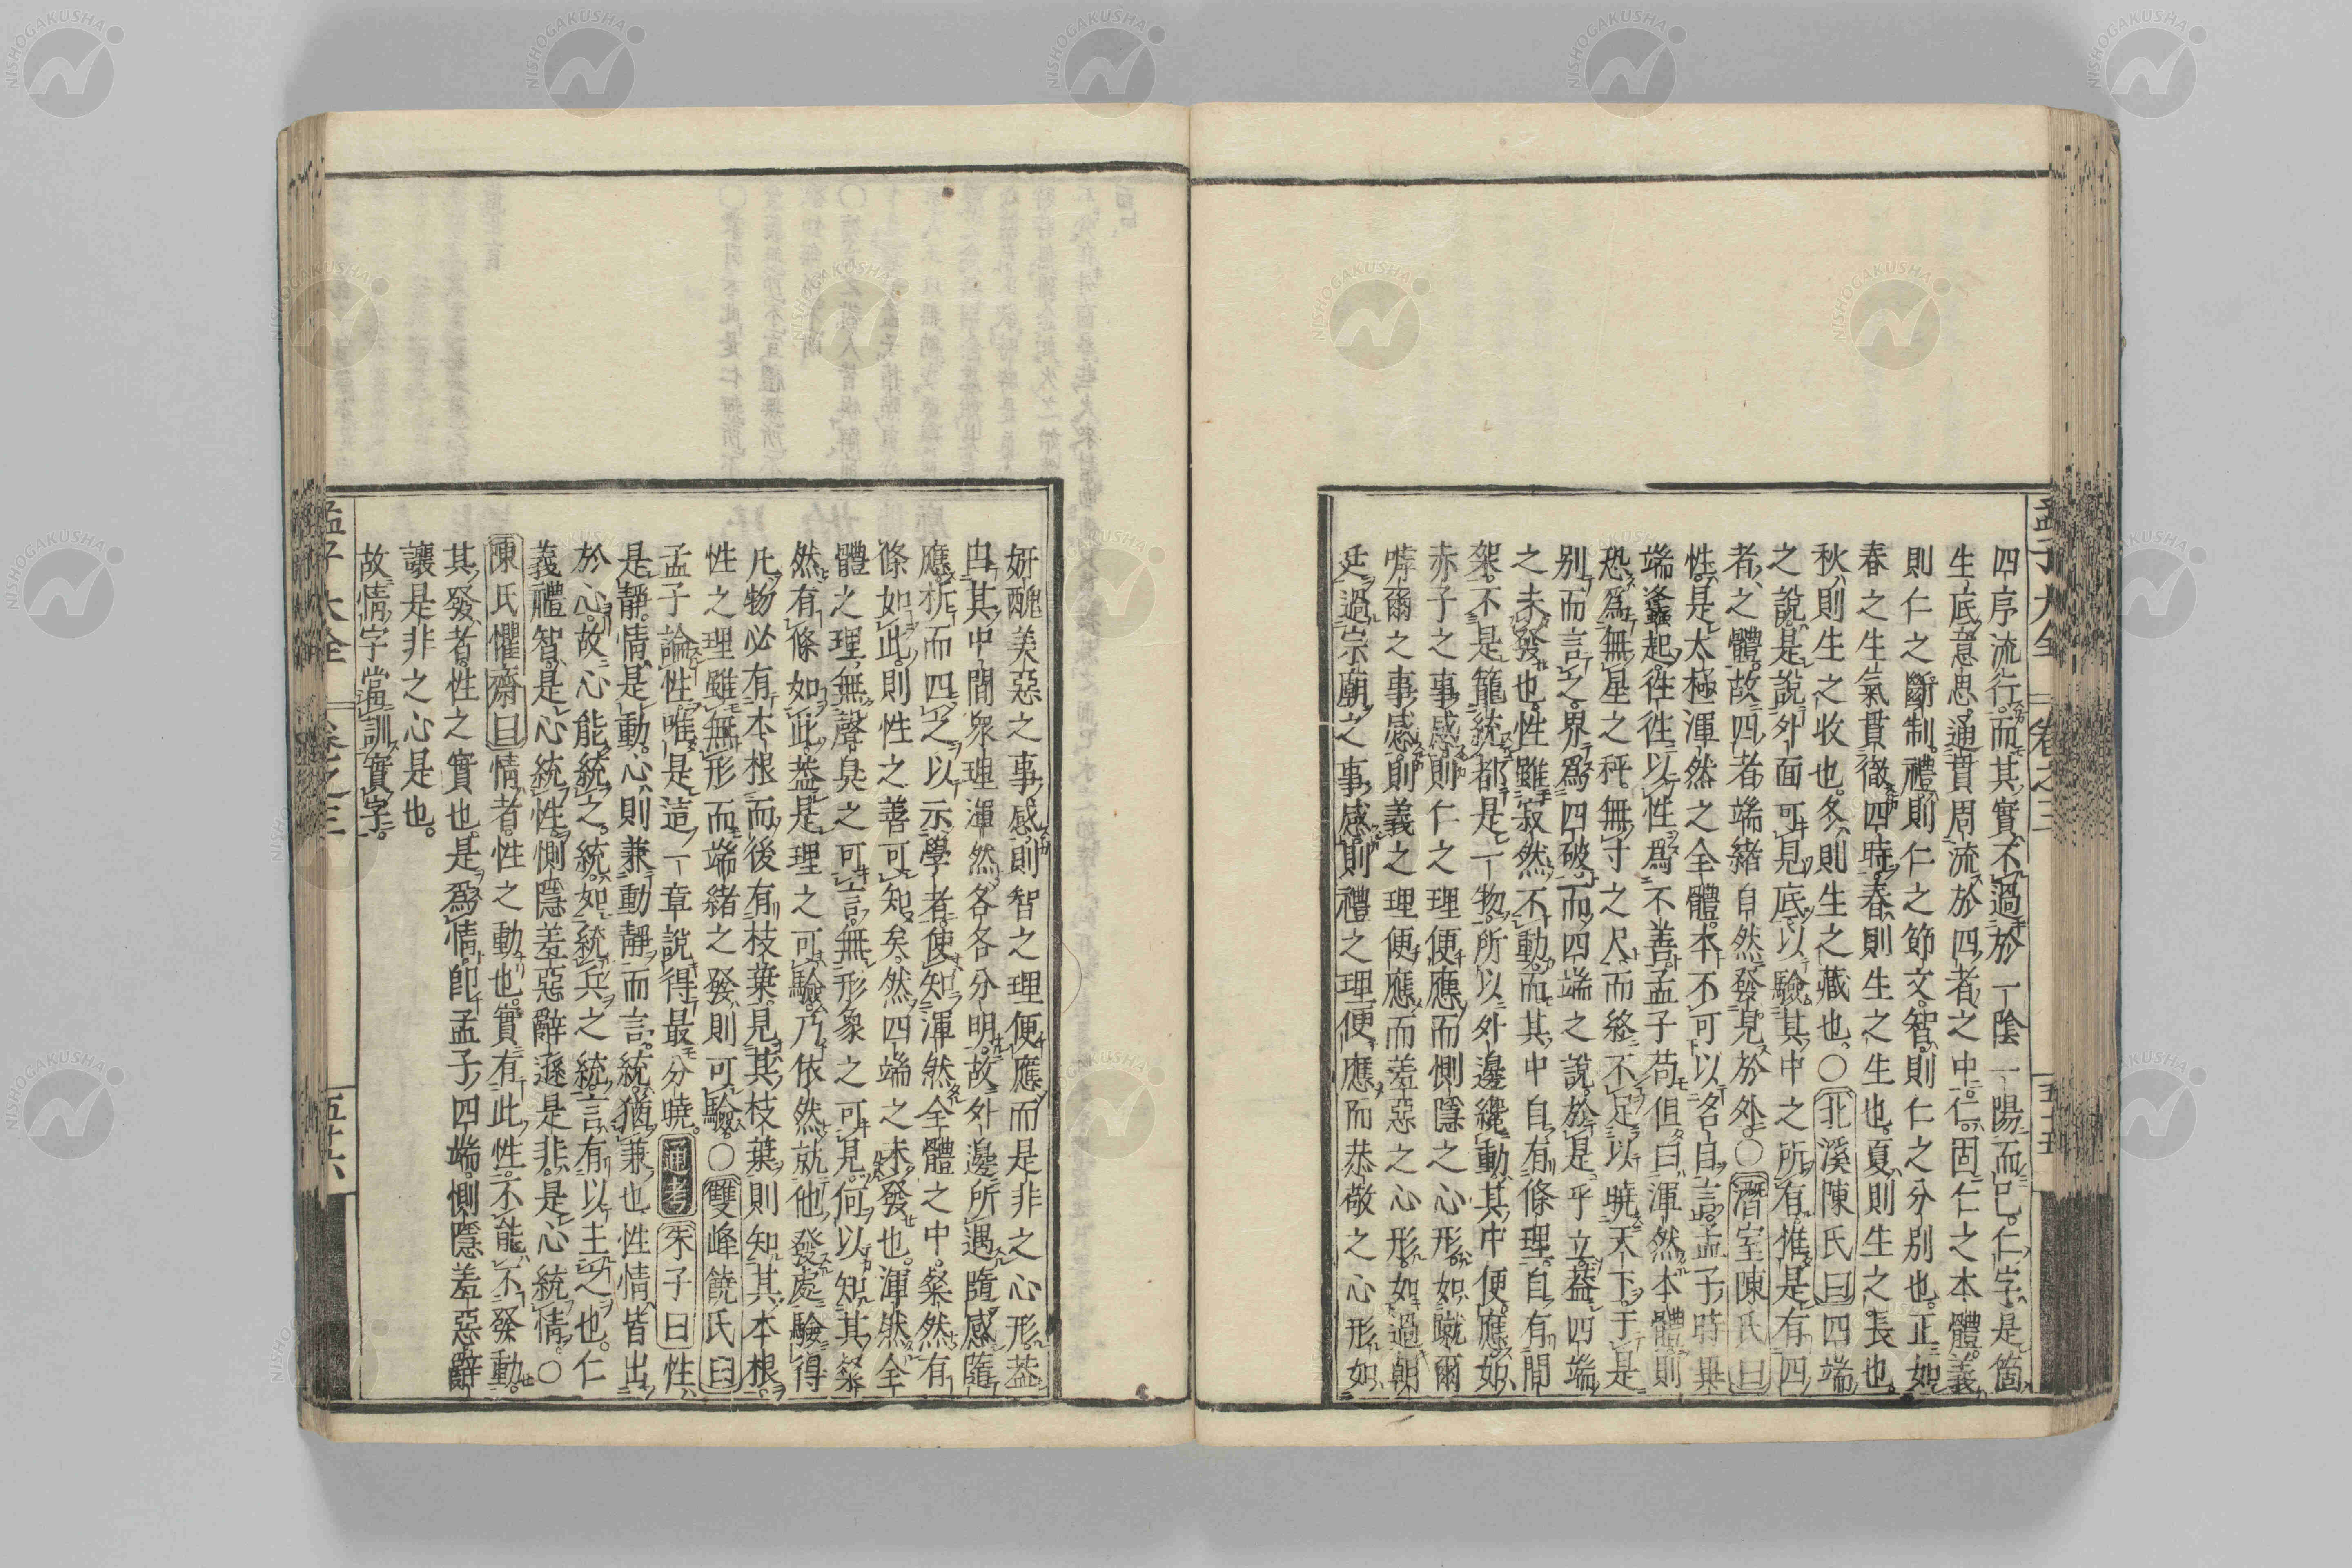 孟子大全
卷之三
五十五
四序流行而其實不過於一陰一陽而已仁字是箇
生底意思通貫周流於四者之中仁固仁之本體義
則仁之斷制禮則仁之節文智則仁之分別也正如
春之生氣貫徹四時春則生之生也夏則生之長也
秋則生之收也冬則生之藏也○北溪陳氏曰四端
之說是說外面可見底以驗其中之所有惟是有四
者之體故四者端緒自然發見於外○潛室陳氏曰
性是太極渾然之全體本不可以名自言孟子時異
端蠭起徃徃以性爲不善孟子苟但曰渾然本體則
恐爲無星之秤無寸之尺而終不足以曉天下于是
別而言之界爲四破而四端之說於是乎立葢四端
之未發也性雖寂然不動而其中自有條理自有間
架不是籠統都是一物所以外邊纔動其中便應如
赤子之事感則仁之理便應而惻隱之心形如蹴爾
嘑爾之事感則義之理便應而羞惡之心形如過朝
廷過宗廟之事感則禮之理便應而恭敬之心形如
妍醜美惡之事感則智之理便應而是非之心形葢
由其中間衆理渾然各各分明故外邊所遇隨感隨
應析而四之以示學者使知渾然全體之中粲然有
條如此則性之善可知矣然四端之未發也渾然全
體之理無聲臭之可言無形象之可見何以知其粲
然有條如此葢是理之可驗乃依然就他發處驗得
凡物必有本根而後有枝葉見其枝葉則知其本根
性之理雖無形而端緒之發則可驗○雙峰饒氏曰
孟子論性唯是這一章說得最分曉通考朱子曰性
是靜情是動心則兼動靜而言統猶兼也性情皆出
於心故心能統之統如統兵之統言有以主之也仁
義禮智是心統性惻隱羞惡辭遜是非是心統情○
陳氏懼齋曰情者性之動也實有此性不能不發動
其發者性之實也是爲情卽孟子四端惻隱羞惡辭
讓是非之心是也
故情字當訓實字
孟子大全
卷之三
五十六